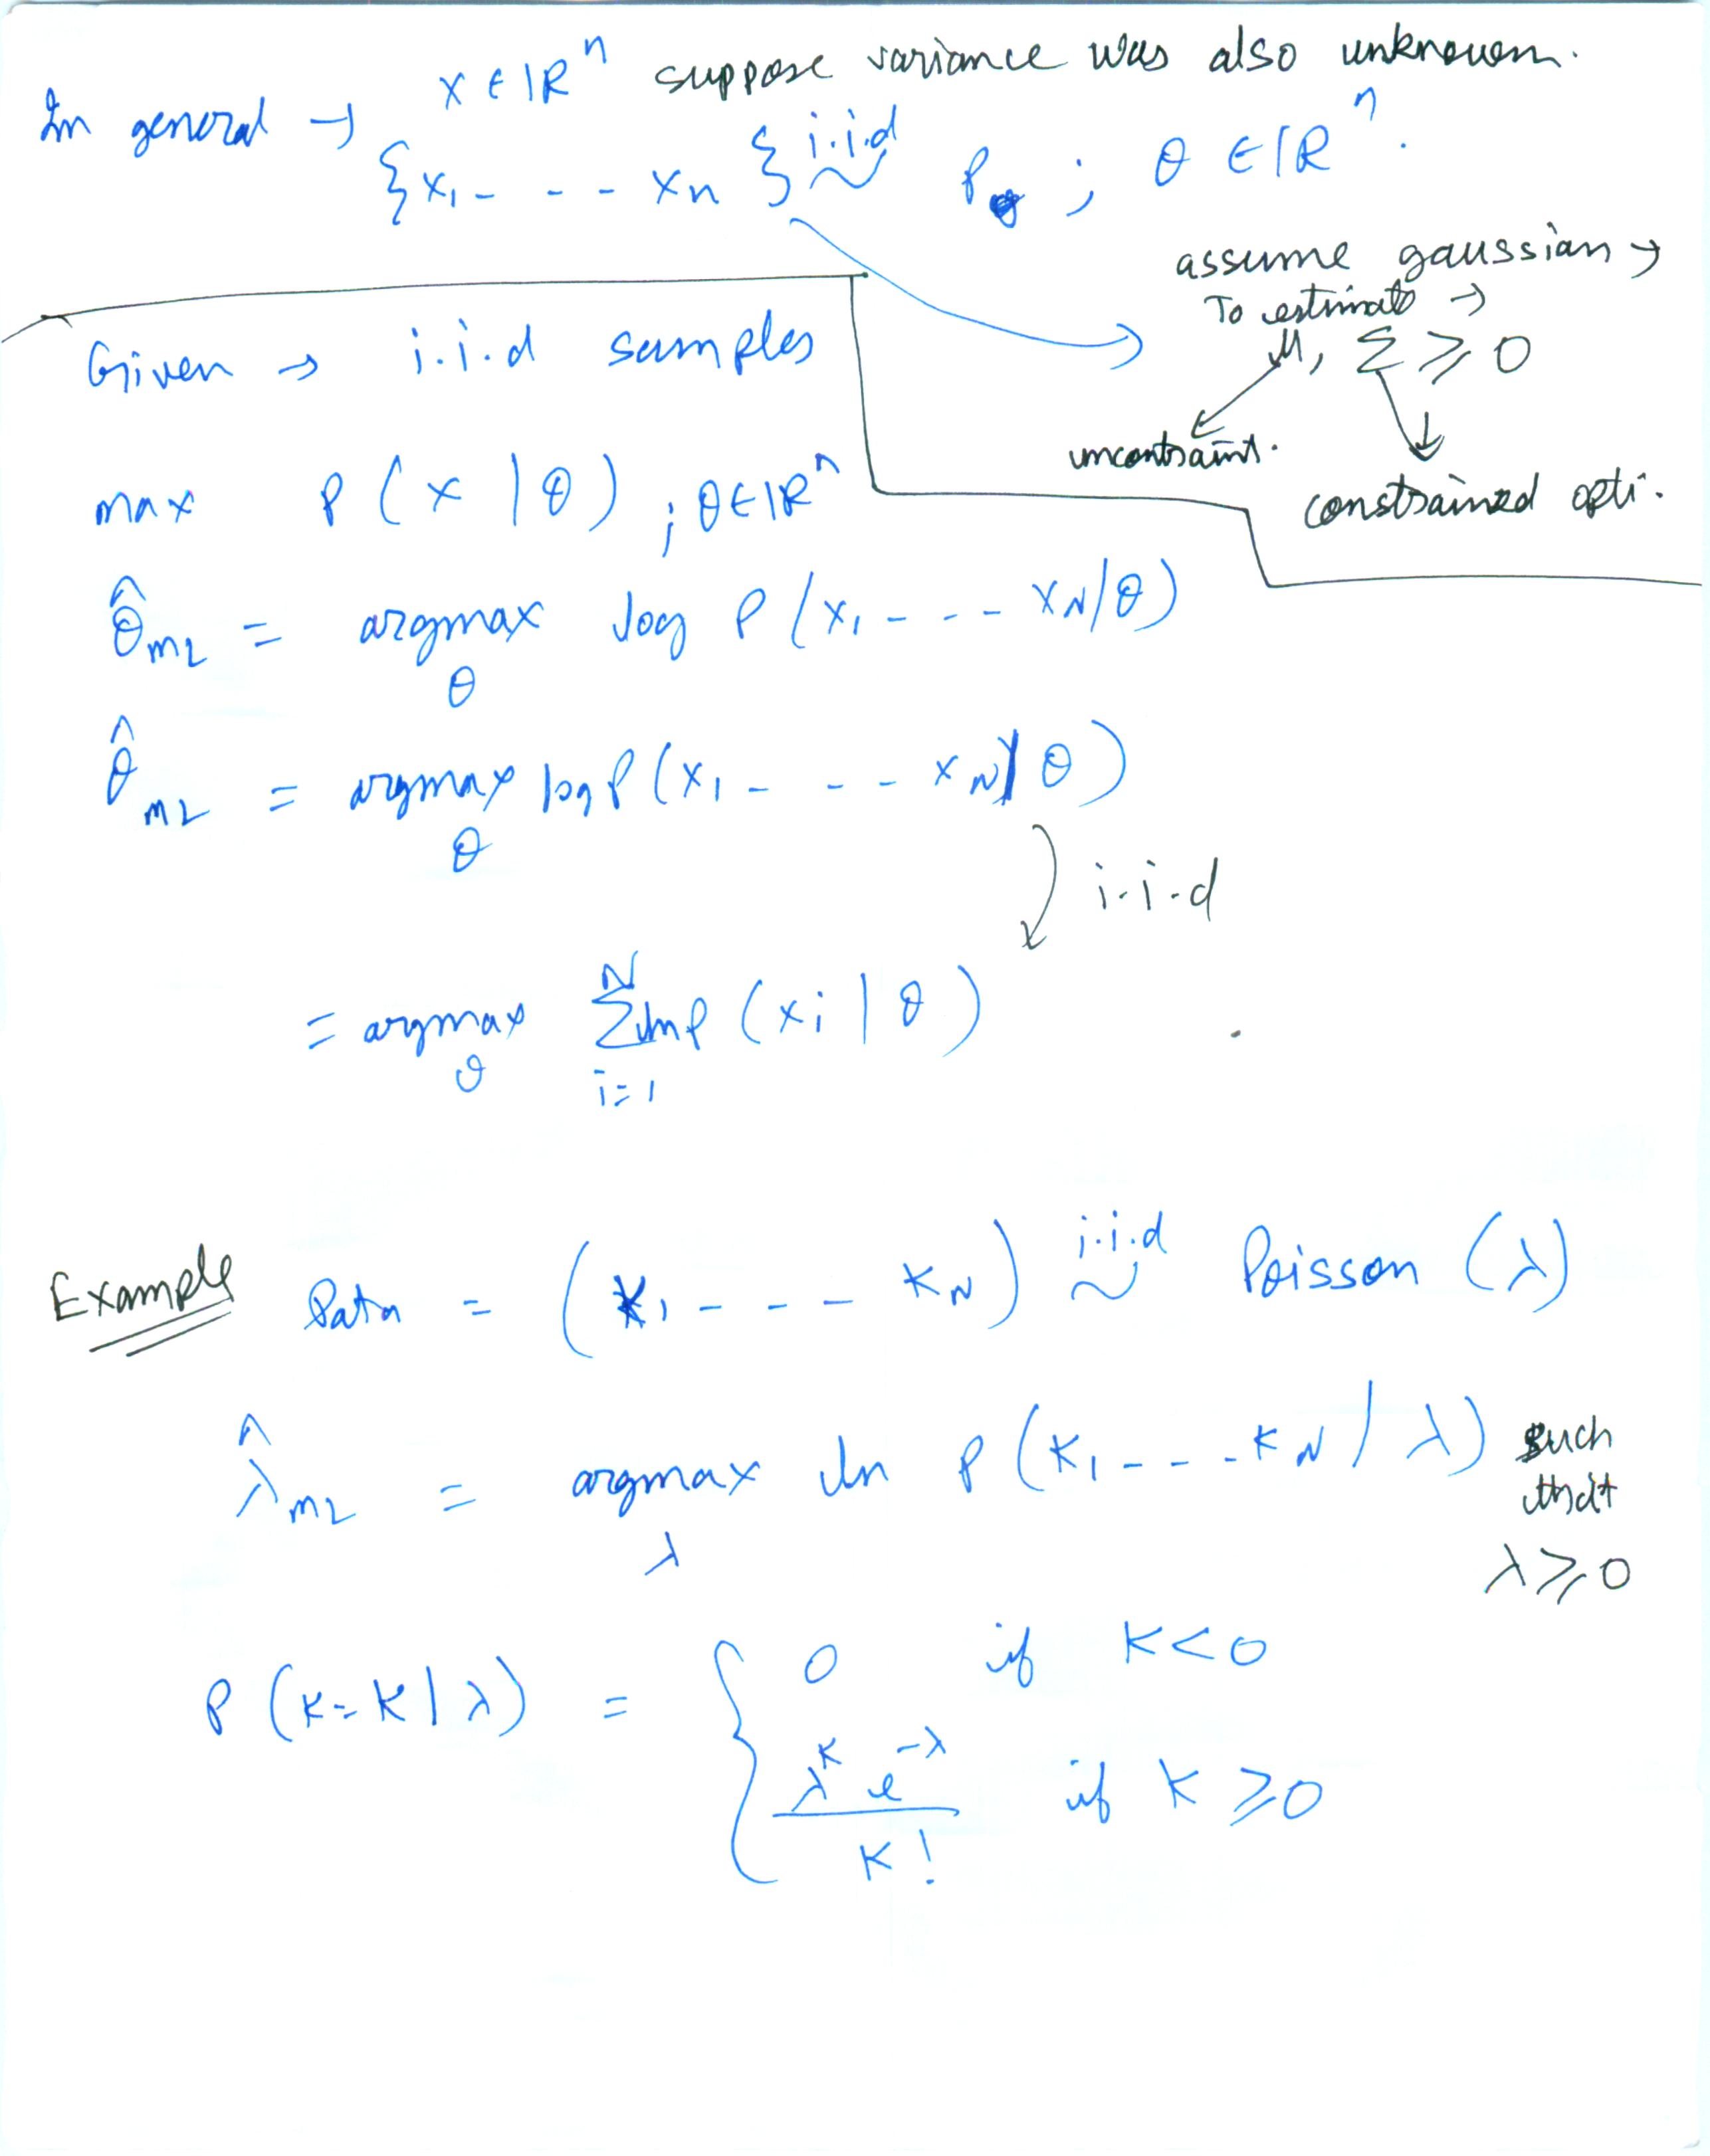 x ∈ ℝⁿ suppose variance was also unknown.
In general → {x₁ - - - - xn} i.i.d ~ Pθ ; θ ∈ ℝⁿ.
assume gaussian →
To estimate →
μ, Σ ≥ 0
uncontraint.
constrained opti.
Given → i.i.d samples
max P(x | θ) ; θ ∈ ℝⁿ
θ̂ML = argmax log P(x₁ - - - xN | θ)
θ
θ̂ML = argmax log P(x₁ - - - xN | θ)
θ
i.i.d
= argmax Σ ln P(xi | θ)
θ i=1 N
Example Data = (K₁ - - - KN) i.i.d ~ Poisson (λ)
λ̂ML = argmax ln P(K₁ - - - KN | λ) such
that
λ
λ ≥ 0
P(K=K | λ) = { 0 if K<0
λᴷ e^-λ / K! if K ≥ 0